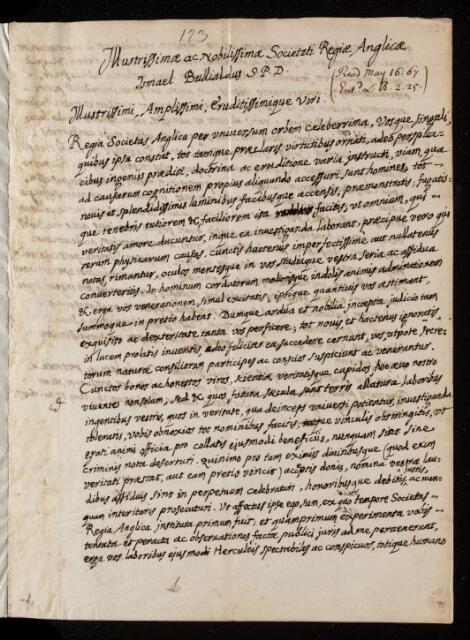 123
Illustrissimæ ac Nobilissimæ Societati Regiæ Anglicæ
Ismael Bullialdus S. P. D.
(Read May 16: 67
Ent^d L. B. 2. 25.)
Illustrissimi, Amplissimi, Eruditissimique Viri.
Regia Societas Anglica per universum orbem celeberrima, Vosque singuli,
quibus ipsa constat, tot tamque præclaris virtutibus ornati, adeò perspica-
cibus ingenijs præditi, doctrina ac eruditione varia instructi, viam qua
ad causarum cognitionem propius aliquando accessuri sunt homines, tot
novis et splendidissimis luminibus facibusque accensis, præmonstratis; fugatis-
que tenebris tutiorem & faciliorem ita facitis, ut omnium, qui
veritatis amore ducuntur, inque ea investiganda laborant, præcipue vero qui
rerum physicarum causas, cunctis hactenus imperfectissime aut nullatenus
notas, rimantur, oculos mentesque in vos studiaque vestra seria ac assidua
converteritis. In hominum cordatorum meliorisque indolis animis admirationem
& erga vos venerationem, simul excitatis; ipsique quantivis vos æstimant,
summoque in pretio habent. Dumque ardua et nobilia incepta judicio tam
exquisito ac dexteritate tanta vos perficere; tot novis et hactenus ignoratis
in lucem prolatis inventis adeò feliciter ea succedere cernunt, vos, utpote secre-
torum naturæ consiliorum participes ac conscios suspiciunt ac venerantur.
Cunctos bonos ac honestos viros, scientiæ veritatisque cupidos hoc ævo nostro
viventes non solum, sed & quos futura sæcula sunt terris allatura laboribus
ingentibus vestris, quos in veritate, qua deinceps universi potientur, investiganda
toleratis, vobis obnoxios tot nominibus facitis, vinculis obstringitis, ut
grati animi officia pro collatis ejusmodi beneficijs, nunquam sint sine
criminis nota deserturi. Quinimo pro tam eximijs divitibusque (quod enim
veritati præstat, aut eam pretio vincit) acceptis donis, nomina vestra lau-
dibus assiduis sint in perpetuum celebraturi, honoribusque debitis, justis, ac nun-
quam interituris prosecuturi. Ut affectus ipse ego sum, ex quo tempore Societas
Regia Anglica instituta primùm fuit, et quamprimum experimenta varijs
tentata et peracta ac observationes factæ publici juris ad me pervenerunt,
erga vos laboribus ejusmodi Herculeis spectabiles ac conspicuos, totique humano